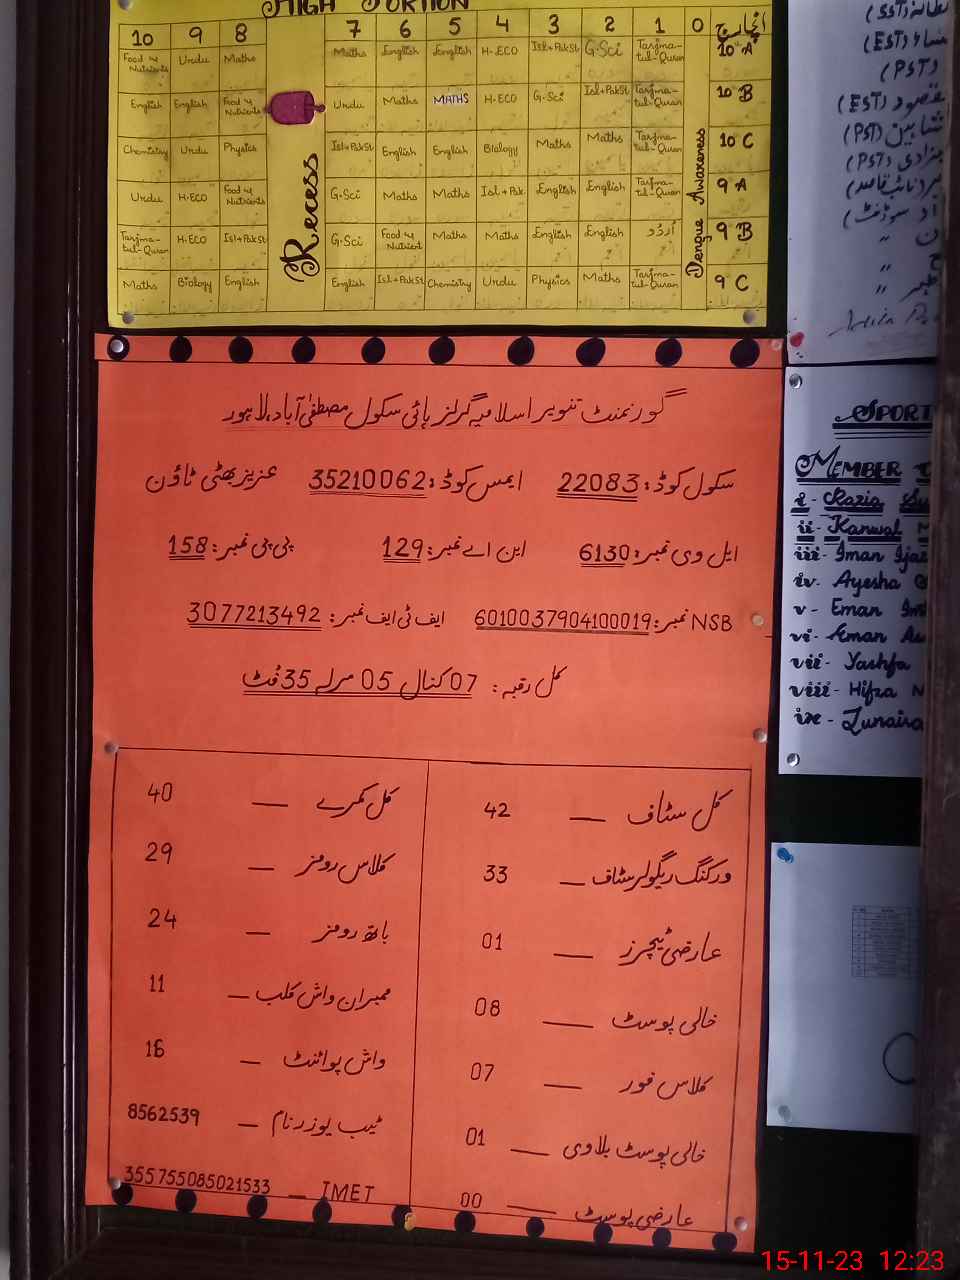 HIGH PORTION
10 9 8 7 6 5 4 3 2 1 0 انچارج
Food & Nutrients Urdu Maths Recess Maths English English H-ECO Isl+PakSt G.Sci Tarjma-tul-Quran Dengue Awareness 10 A
English English Food & Nutrients Urdu Maths MATHS H-ECO G.Sci Isl+PakSt Tarjma-tul-Quran 10 B
Chemistry Urdu Physics Isl+PakSt English English Biology Maths Maths Tarjma-tul-Quran 10 C
Urdu H-ECO Food & Nutrients G.Sci Maths Maths Isl+Pak English English Tarjma-tul-Quran 9 A
Tarjma-tul-Quran H-ECO Isl+PakSt G.Sci Food & Nutrient Maths Maths English English اُردُو 9 B
Maths Biology English English Isl+PakSt Chemistry Urdu Physics Maths Tarjma-tul-Quran 9 C
گورنمنٹ تنویر اسلامیہ گرلز ہائی سکول مصطفیٰ آباد، لاہور
سکول کوڈ: 22083 ایمس کوڈ: 35210062 عزیز بھٹی ٹاؤن
ایل وی نمبر: 6130 این اے نمبر: 129 پی پی نمبر: 158
NSB نمبر: 6010037904100019 ایف ٹی ایف نمبر: 3077213492
کل رقبہ: 07 کنال 05 مرلہ 35 فٹ
کل سٹاف — 42
ورکنگ ریگولر سٹاف — 33
عارضی ٹیچرز — 01
خالی پوسٹ — 08
کلاس فور — 07
خالی پوسٹ بلاوی — 01
عارضی پوسٹ — 00
کل کمرے — 40
کلاس رومز — 29
باتھ رومز — 24
ممبران واش کلب — 11
واش پوائنٹ — 16
ٹیب یوزر نام — 8562539
IMET — 355755085021533
(SST)
(EST)
(PST)
مقصود (EST)
شاہین (PST)
(PST)
SPORT
MEMBER
i- Razia
ii- Kanwal
iii- Iman Ijaz
iv- Ayesha
v- Eman
vi- Eman
vii- Yashfa
viii- Hifza
ix- Zunaira
15-11-23 12:23